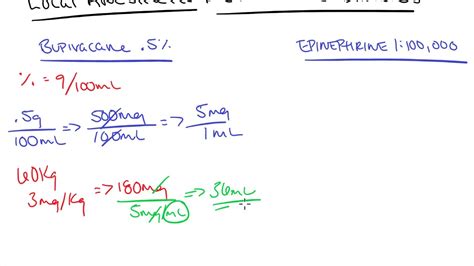 LOCAL
BUPIVACAINE .5% EPINEPHRINE 1:100,000
% = g/100mL
.5g/100mL => 500mg/100mL => 5mg/1mL
60Kg
3mg/Kg => 180mg/5mg/mL => 36mL